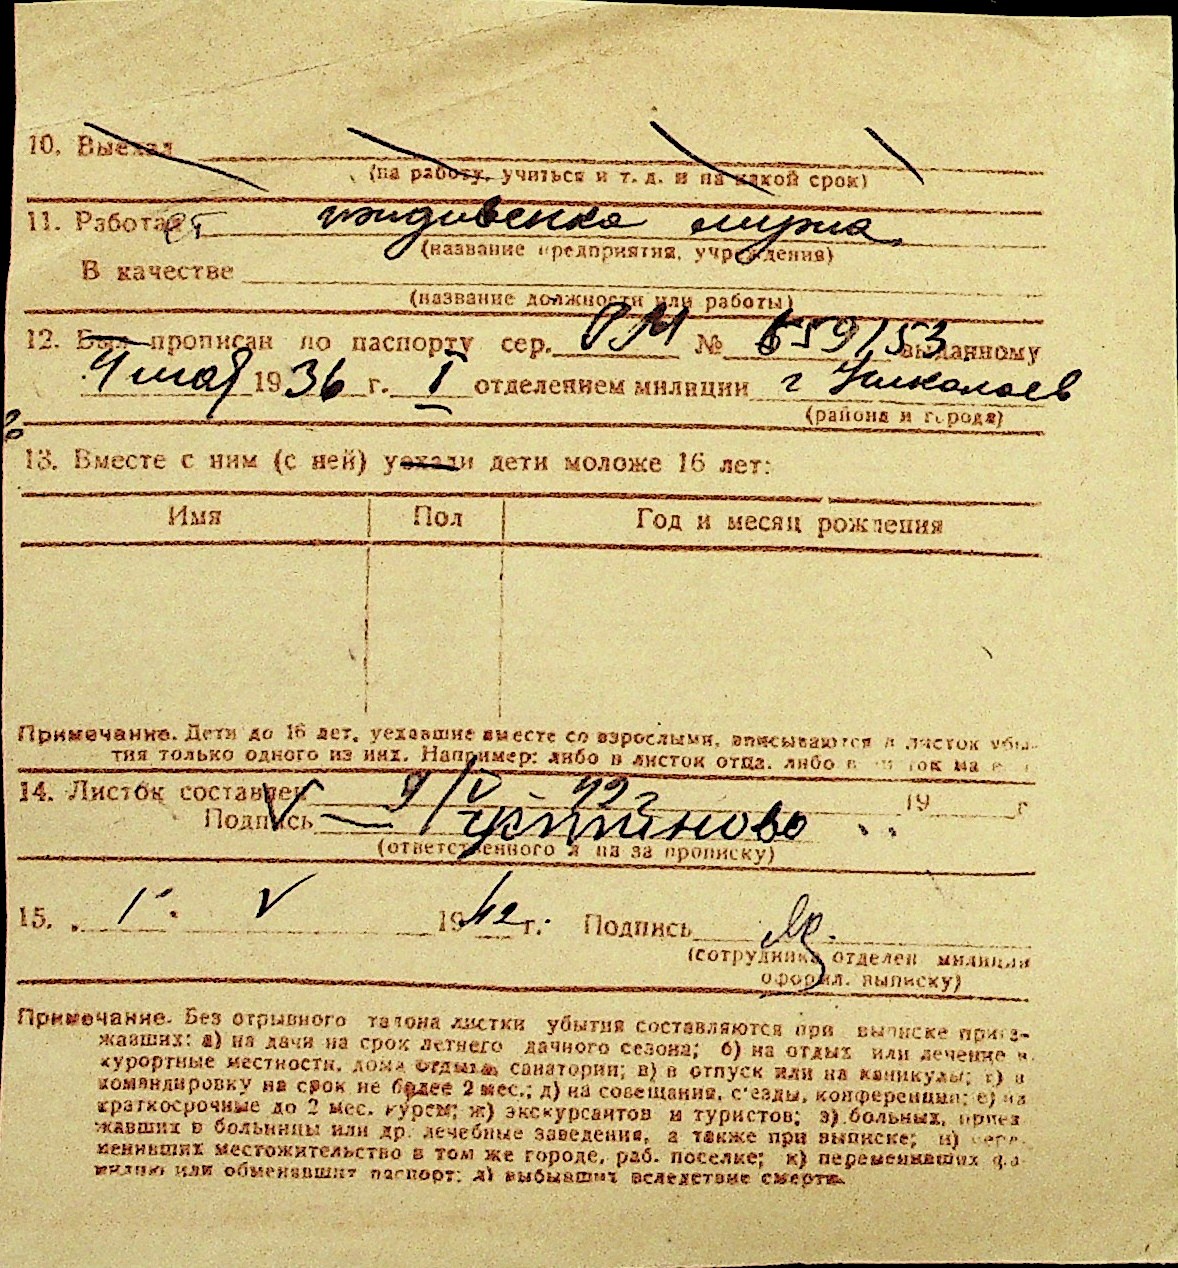 10. Выехал
(на работу, учиться и т. д. и на какой срок)
11. Работает иждивенка мужа
(название предприятия, учреждения)
В качестве
(название должности или работы)
12. Был прописан по паспорту сер. РМ № 659153 выданному
4 мая 1936 г. I отделением милиции г Николаев
(района и города)
13. Вместе с ним (с ней) уехали дети моложе 16 лет:
Имя Пол Год и месяц рождения
Примечание. Дети до 16 лет, уехавшие вместе со взрослыми, вписываются в листок убы-
тия только одного из них. Например: либо в листок отца, либо в листок ма
14. Листок составлен 9/V 42г 19 г
Подпись
(ответственного за прописку)
15. 1 V 1942 г. Подпись
(сотрудника отделен. милиции
оформл. выписку)
Примечание. Без отрывного талона листки убытия составляются при выписке приез-
жавших: а) на дачи на срок летнего дачного сезона; б) на отдых или лечение в
курортные местности, дома отдыха, санатории; в) в отпуск или на каникулы; г) в
командировку на срок не более 2 мес.; д) на совещания, с'езды, конференции; е) на
краткосрочные до 2 мес. курсы; ж) экскурсантов и туристов; з) больных, приез
жавших в больницы или др. лечебные заведения, а также при выписке; и) пере-
менивших местожительство в том же городе, раб. поселке; к) переменивших фа-
милию или обменявших паспорт; л) выбывших вследствие смерти.